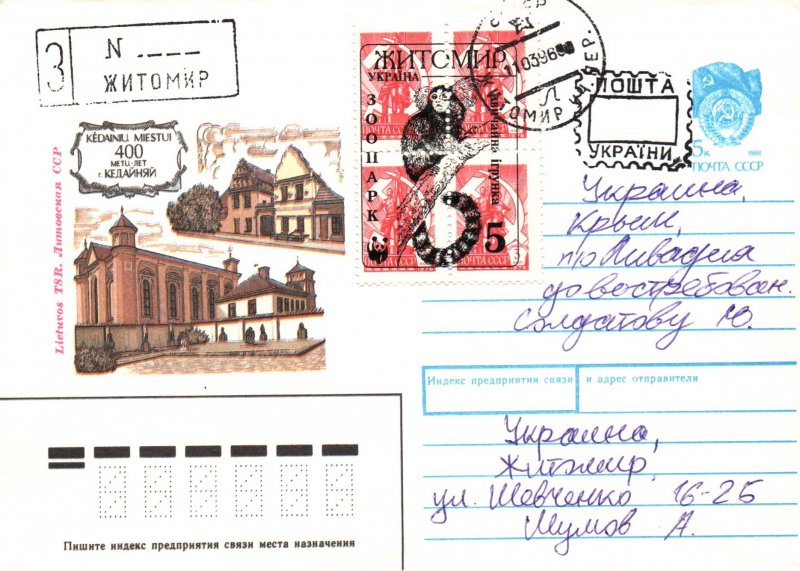 З N
ЖИТОМИР
KĖDAINIŲ MIESTUI
400
METŲ-ЛЕТ
г. КЕДАЙНЯЙ
Lietuvos TSR. Литовская ССР
ЖИТОМИР
УКРАЇНА
ЗООПАРК
ігрунка
5
ПОЧТА СССР
ПОЧТА СССР
110396
ЖИТОМИР
ПОШТА
УКРАЇНИ
5к
1988
ПОЧТА СССР
Украина,
Крым,
п/о Ливадия
до востребован.
Солдатову Ю.
Индекс предприятия связи и адрес отправителя
Украина,
Житомир
ул. Шевченко 16-25
Шумов А.
Пишите индекс предприятия связи места назначения